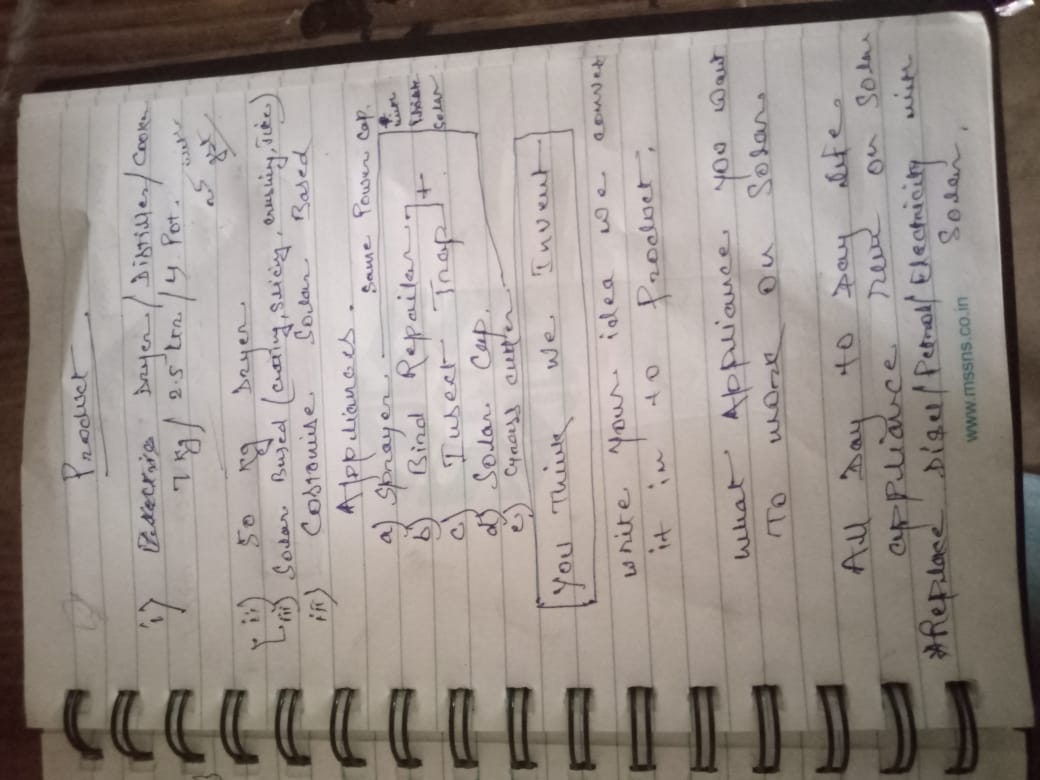 Product
i) Electric Dryer / Distiller / Cooker
7 kg / 2.5 Ltr / 4 Pot.
with
gst
ii) 50 kg Dryer.
iii) Solar Based (Cutting, Slicing, crushing, Juice)
iii) Costomise Solar Based
Appliances.
a) Sprayer. Same Power cap.
b) Bird Repailer +
c) Insect Trap
with
Solar
d) Solar Cap.
e) Grass cutter
You Think We Invent
write your idea we convet
it in to Product.
what Appliance you want
To work on Solar
All Day to Day life
appliance run on Solar
*Replace Disel/Petrol/Electricity with
Solar.
www.mssns.co.in